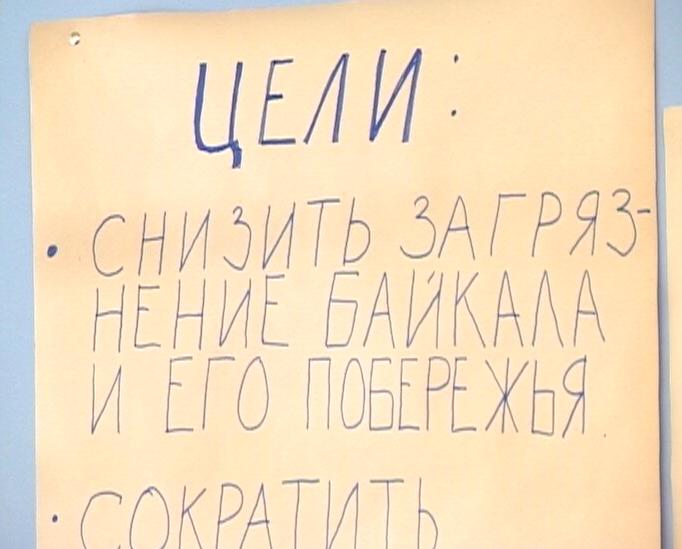 ЦЕЛИ:
• СНИЗИТЬ ЗАГРЯЗ-
НЕНИЕ БАЙКАЛА
И ЕГО ПОБЕРЕЖЬЯ.
• СОКРАТИТЬ